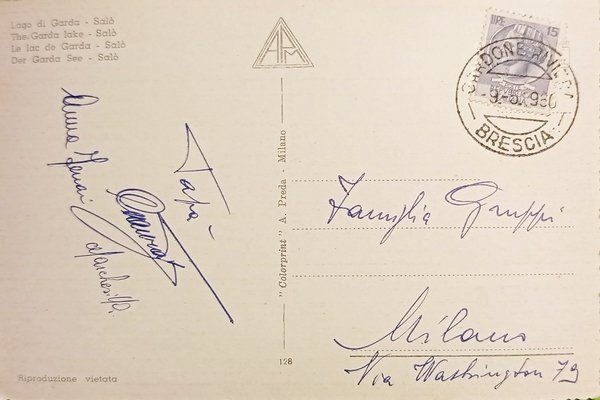 Lago di Garda - Salò
The Garda lake - Salò
Le lac de Garda - Salò
Der Garda See - Salò
APM
LIRE 15
GARDONE RIVIERA
BRESCIA
Papà
Anna
"Colorprint" A. Preda - Milano
128
Famiglia Gruppi
Milano
Via Washington 79
Riproduzione vietata